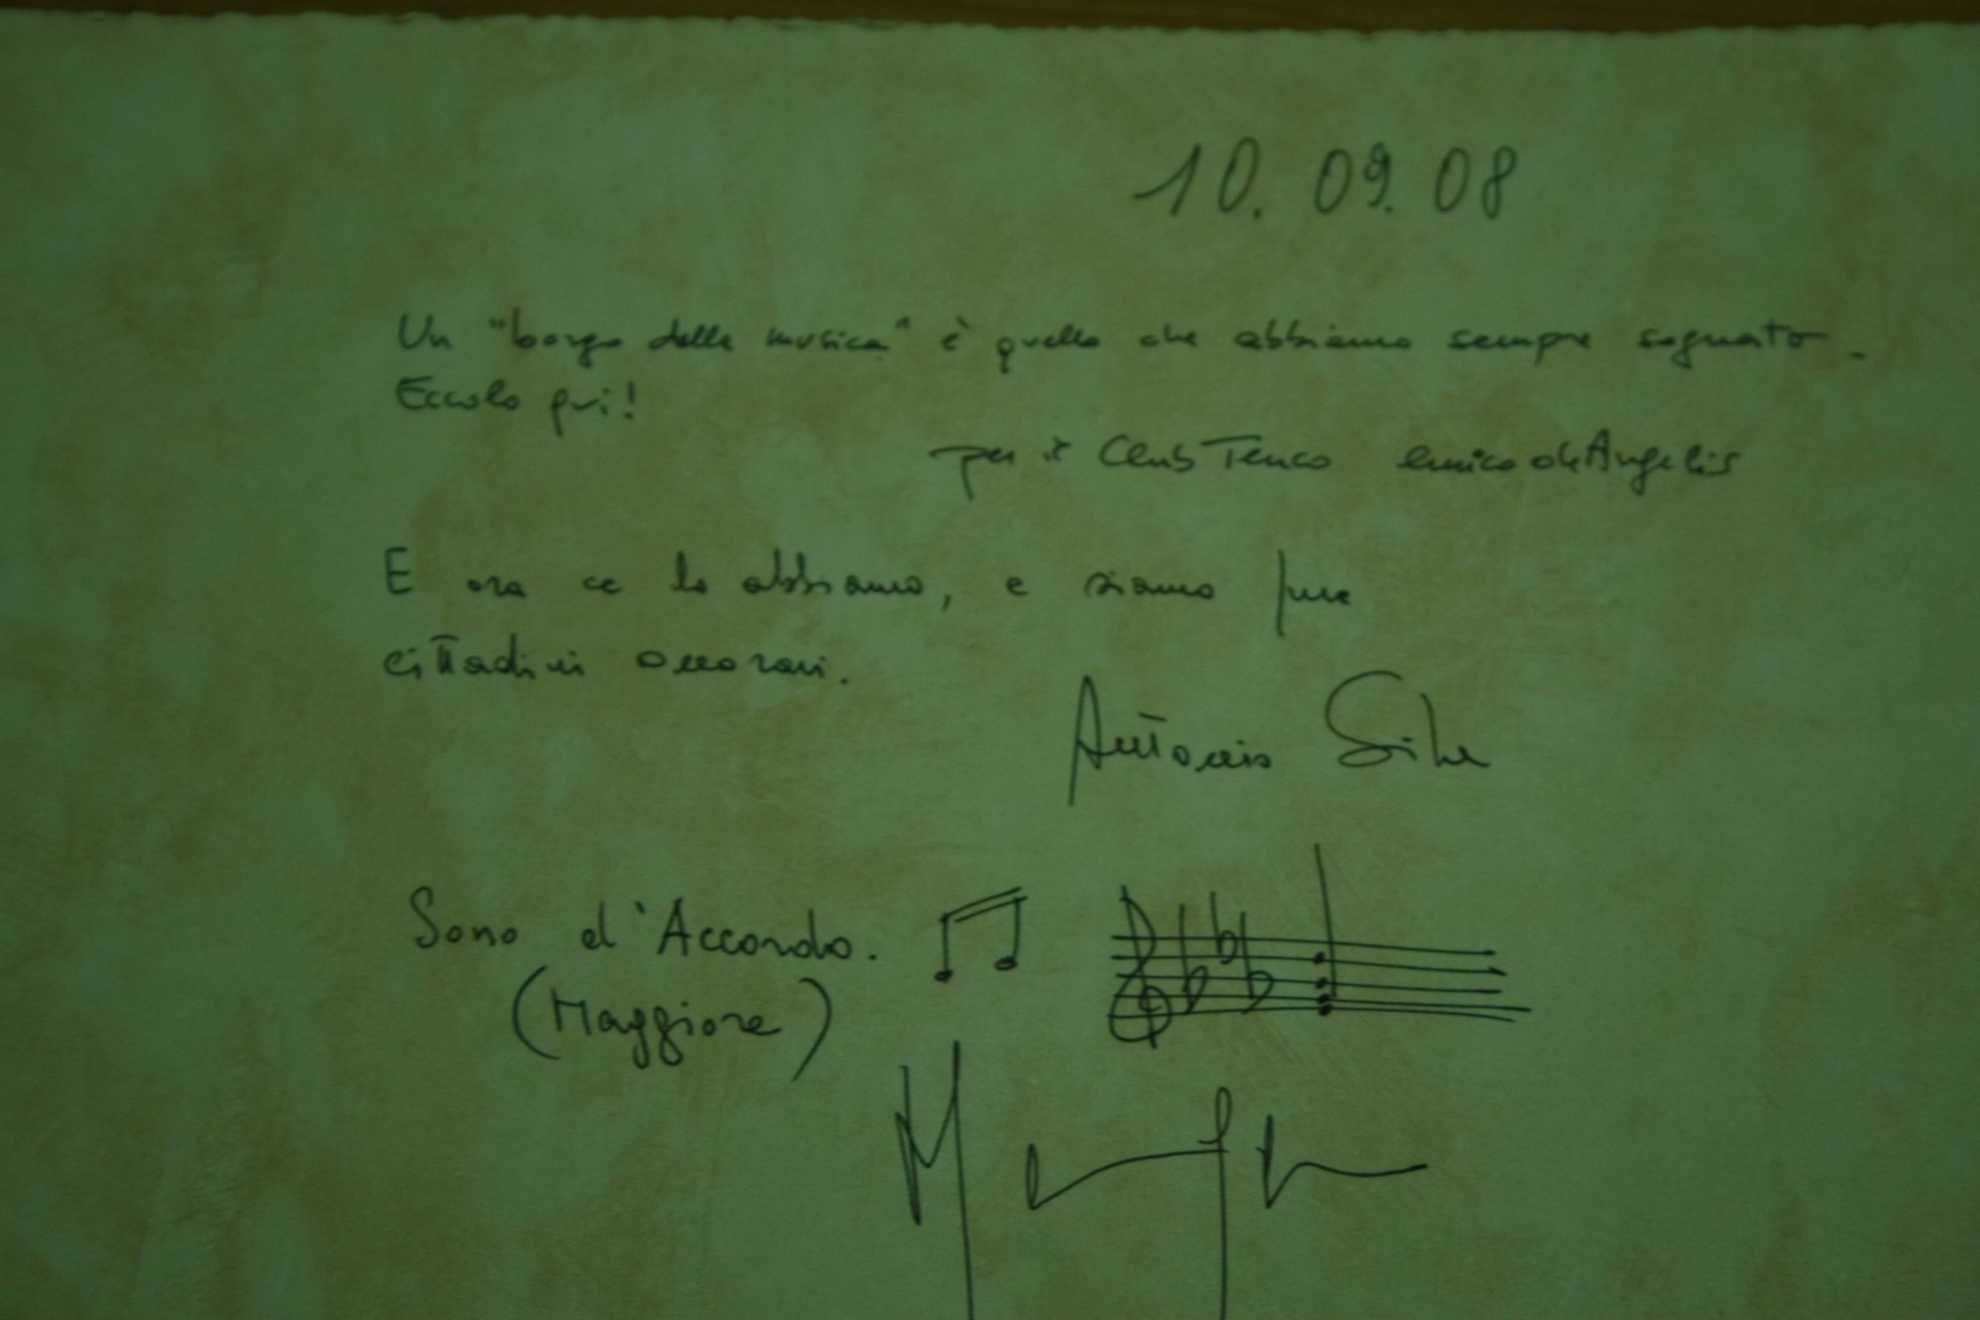 10.09.08
Un "borgo della musica" è quello che abbiamo sempre sognato.
Eccolo qui!
per il Club Tenco enrico de Angelis
E ora ce lo abbiamo, e siamo pure
cittadini onorari.
Antonio Silva
Sono d'Accordo.
(Maggiore)